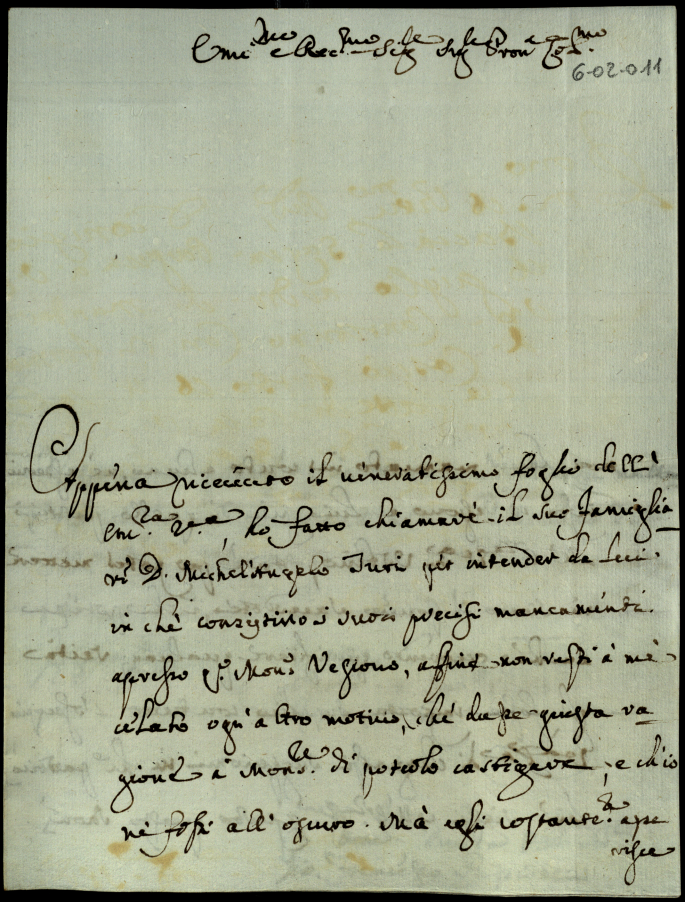 Em.mo e Rev.mo Sig.re Sig.re Pron
6-02-011
Appena ricevuto il veneratissimo foglio dell'
em.za v.a, ho fatto chiamare il suo famiglia
re D. Michel'Angelo Turi per intender da lui
in che consistino i suoi precisi mancamenti
apresso q.o Mons.r Vescovo, affine non resti à me
celato ogn'altro motivo, che da se giusta ra
gione à Mons.re di poterlo castigare, e ch'io
ne fossi all'oscuro. Mà egli costante.te asse
risce